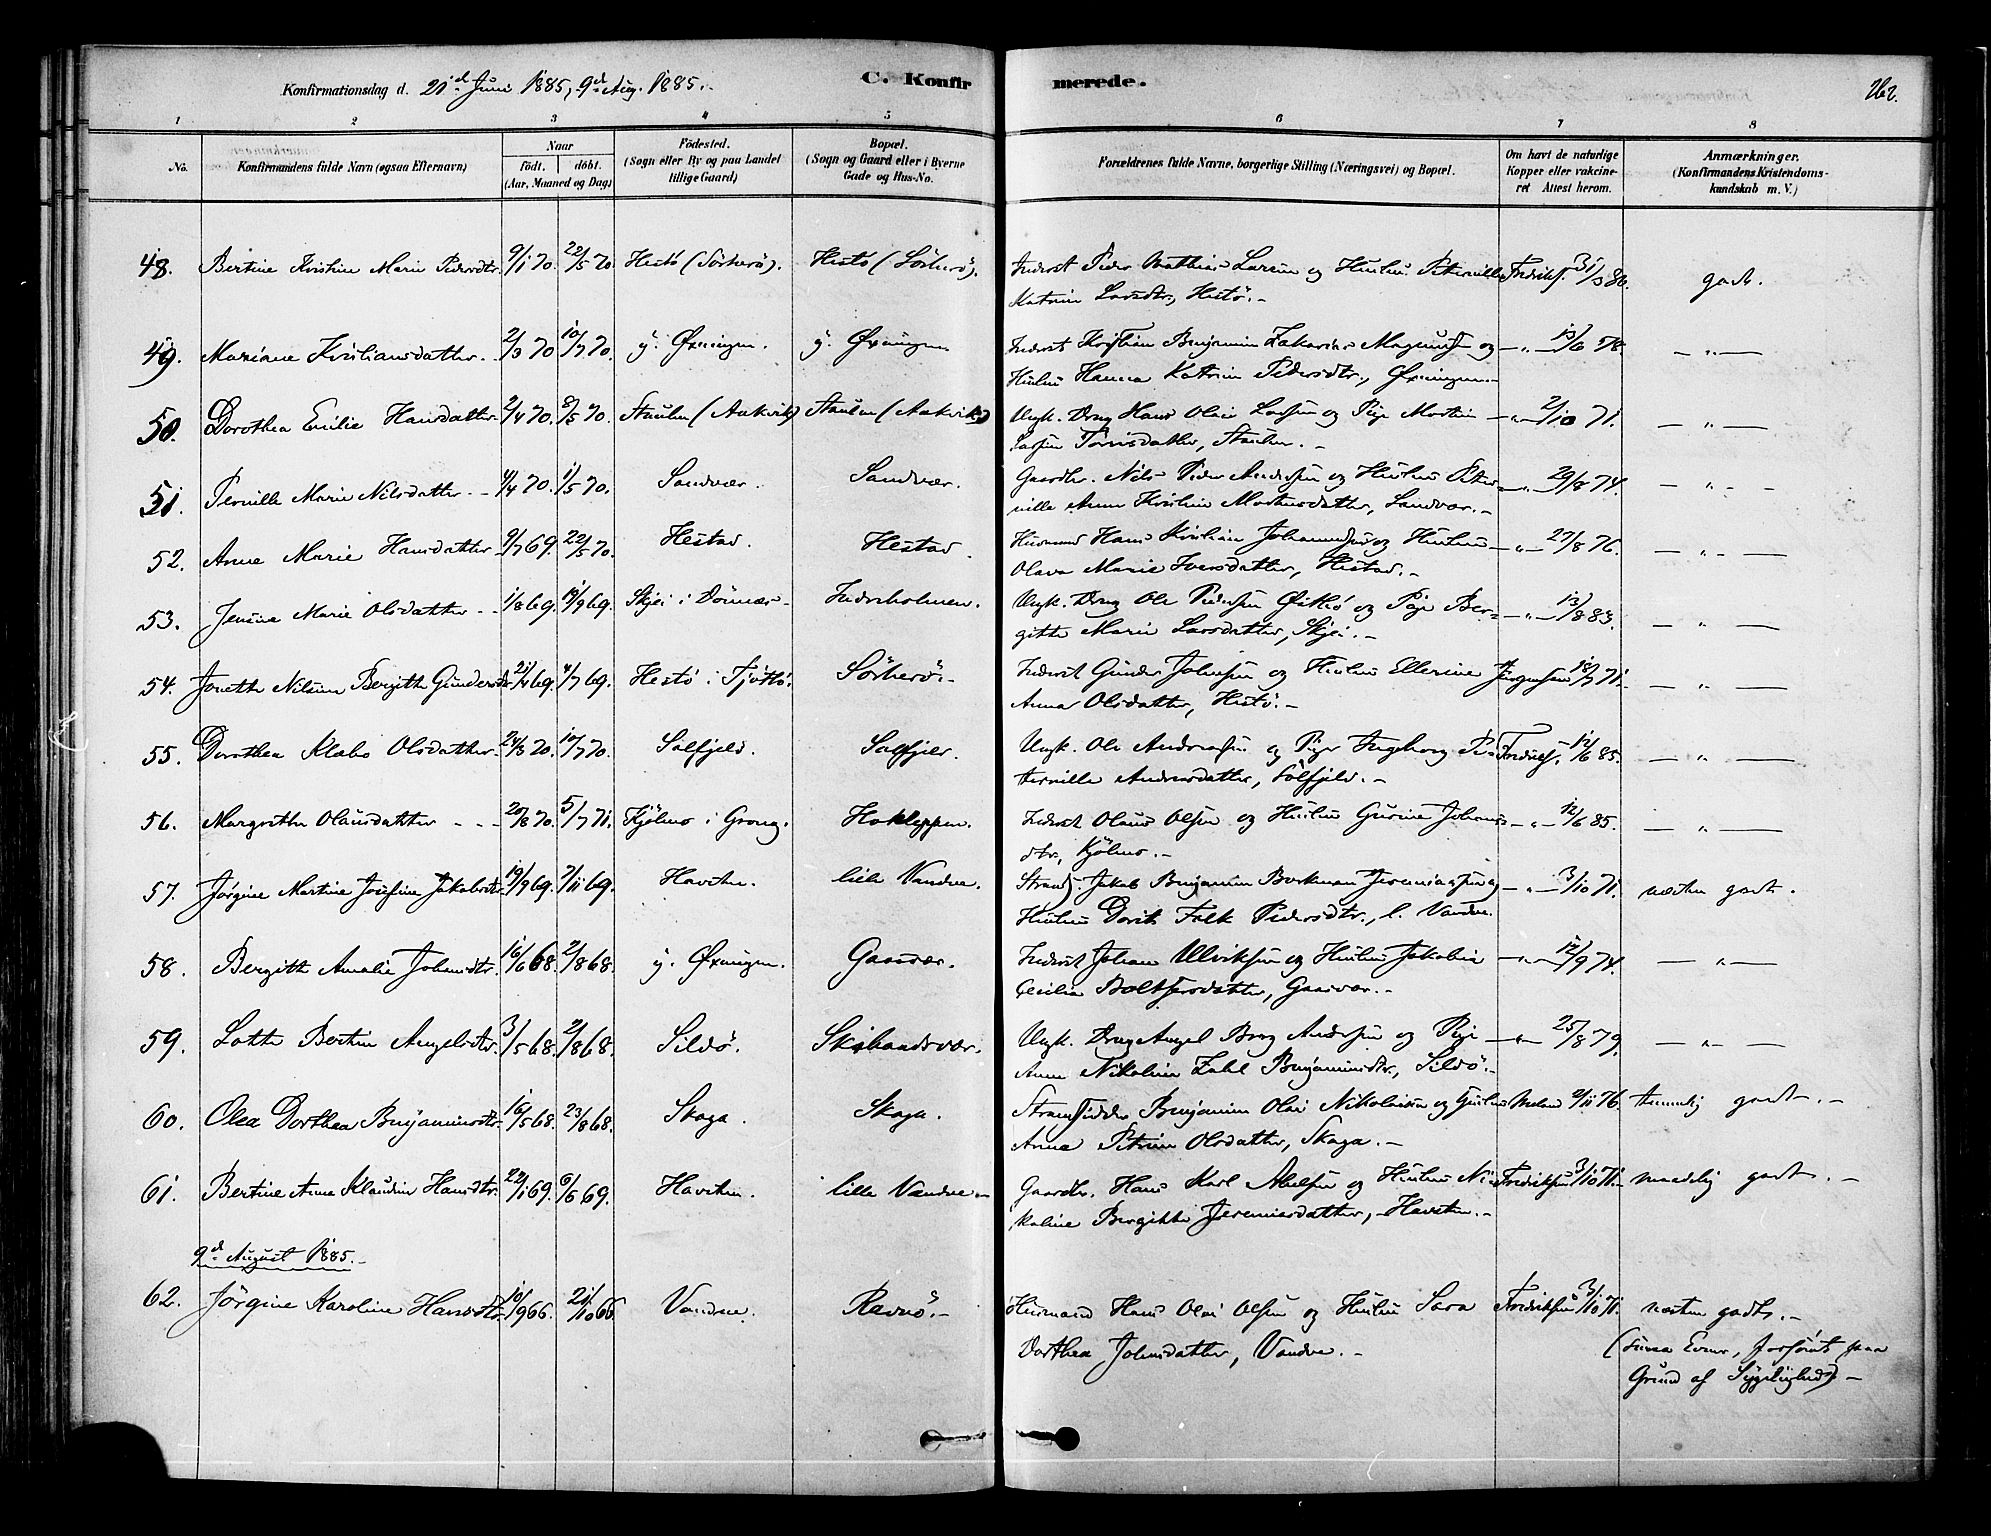 Konfirmationsdag d. 21d Juni 1885, 9d Aug. 1885.
C. Konfirmerede.
262.
1 2 3 4 5 6 7 8
No. Konfirmandens fulde Navn (ogsaa Efternavn)
Naar födt. döbt. (Aar, Maaned og Dag)
Födested. (Sogn eller By og paa Landet tillige Gaard)
Bopæl. (Sogn og Gaard eller i Byerne Gade og Hus-No.
Forældrenes fulde Navne, borgerlige Stilling (Næringsvei) og Bopæl.
Om havt de naturlige Kopper eller vakcineret Attest herom.
Anmærkninger. (Konfirmandens Kristendomskundskab m. V.)
48. Bertine Kristine Marie Pedersdtr. 9/1 70. 22/5 70. Hestö (Sörherö). Hestö (Sörherö). Inderst Peder Mathias Larsen og Hustru Peternille 31/3 80. godt.
Katrine Larsdtr., Hestö. -
49. Mariane Kristiansdatter. 2/3 70 10/7 70. y. Øxningen. y. Øxningen Inderst Kristian Benjamin Zakarias Magnus. og - " - 13/6 78. - " -
Hustru Hanna Katrine Pedersdtr., Øxningen. -
50. Dorothea Emilie Hansdatter. 2/4 70. 8/5 70. Staulen (Aakvik) Staulen (Aakvik) Ungk. Dreng Hans Olai Larsen og Pige Martin - " - 2/10 71. - " -
Tönisdatter, Staulen. -
51. Pernille Marie Nilsdatter. - 4/4 70. 1/5 70. Sandvær. Sandvær. Gaardbr. Nils Peder Andersen og Hustru Peter- - " - 29/8 74. - " -
nille Anna Kristine Mortensdatter, Sandvær. -
52. Anne Marie Hansdatter 9/7 69. 22/5 70. Hestad. Hestad. Husmand Hans Kristian Johannesen og Hustru - " - 27/8 76. - " -
Olava Marie Iversdatter, Hestad. -
53. Jensine Marie Olsdatter - - 1/8 69. 19/9 69. Skjei i Dönnæs - Indreholmen. Ungk. Dreng Ole Pedersen og Pige Ber- - " - 13/8 83. - " -
gitte Marie Larsdatter, Skjei. -
54. Jorette Nilsine Bergitte Gundersdtr. 21/4 69. 4/7 69. Hestö i Tjöttö. Sörherö. - Inderst Gunder Johnsen og Hustru Ellerine Jürgensen 18/7 71. - " -
Anna Olsdatter, Hestö. -
55. Dorothea Klæbo Olsdatter. 24/3 70. 10/7 70. Solfjeld. Solfjeld. Ungk. Ole Andreasen og Pige Ingeborg Pe- 12/6 85. - " -
ternille Andersdatter, Solfjeld. -
56. Margrethe Olausdatter - - - 20/8 70. 5/7 71. Fjölmo i Grong. Hokleppen. Inderst Olaus Olsen og Hustru Gurine Johans- - " - 12/6 85. - " -
dtr., Kjölmo. -
57. Jørgine Martine Josefine Jakobsdtr. 19/9 69. 7/11 69. Havsten. lille Vandve. Strands. Jakob Benjamin Jeremiassen og - " - 3/10 71. næsten godt.
Hustru Dorit Falk Pedersdtr., l. Vandve.
58. Bergitte Amalie Johansdtr. 16/6 68. 2/8 68. y. Øxningen. Gaasvær. Inderst Johan Ulriksen og Hustru Jakobine - " - 12/9 74. - " -
Cecilia Baltsersdatter, Gaasvær. -
59. Lotte Bertine Angelsdtr. 3/5 68. 2/8 68. Sildö. Skibaadsvær. Ungk. Dreng Angel Borg Andersen og Pige - " - 25/8 79. - " -
Anne Nikoline Zahl Benjaminsdtr., Sildö. -
60. Olea Dorthea Benjaminsdtr. 16/5 68. 23/8 68. Skaga. Skaga. Strandsidder Benjamin Olai Nikolaisen og Hustru 2/11 76. temmelig godt. -
Anne Petrine Olsdatter, Skaga. -
61. Bertine Anne Klaudine Hansdtr. 22/1 69. 6/6 69. Havsten. lille Vandve - Gaardbr. Hans Karl Abelsen og Hustru Ni- Fredriksen 3/10 71. maadelig godt. -
koline Bergitte Jeremiasdatter, Havsten. -
9d August 1885. -
62. Jørgine Karoline Hansdtr. 10/9 66. 21/10 66. Vandve. Ravnö. - Husmand Hans Olai Olsen og Hustru Sara Fredriksen 3/10 71. næsten godt. -
Dorthea Johnsdatter, Vandve. - (svage Evner, forsömt paa
Grund af Sygelighed) -